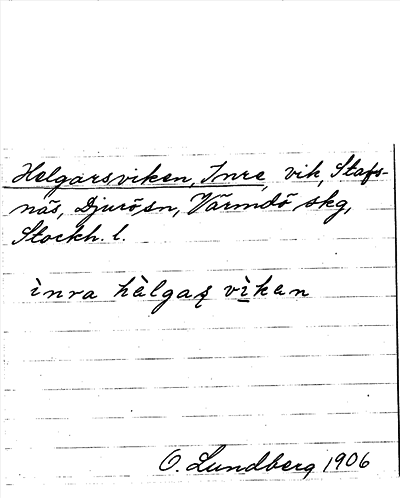 Helgarsviken, Inre, vik, Stafs-
näs, Djurö sn, Värmdö skg,
Stockh. l.
ìnra hèlgaʂ vìkan
O. Lundberg 1906